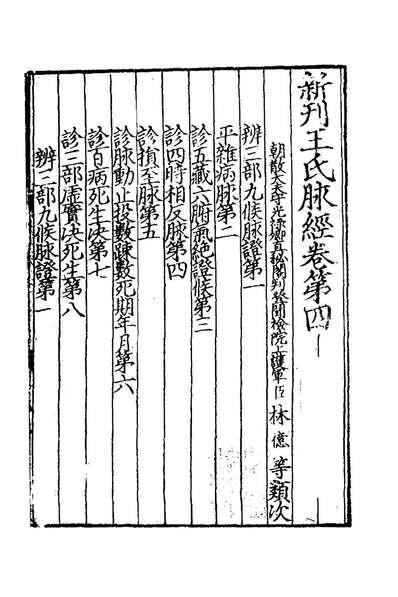 新刊王氏脉經卷第四
朝散大夫守光祿卿直秘閣判登聞檢院上護軍臣林億等類次
辨三部九候脉證第一
平雜病脉第二
診五藏六腑氣絕證候第三
診四時相反脉第四
診損至脉第五
診脉動止投數踈數死期年月第六
診百病死生決第七
診三部虛實決死生第八
辨三部九候脉證第一